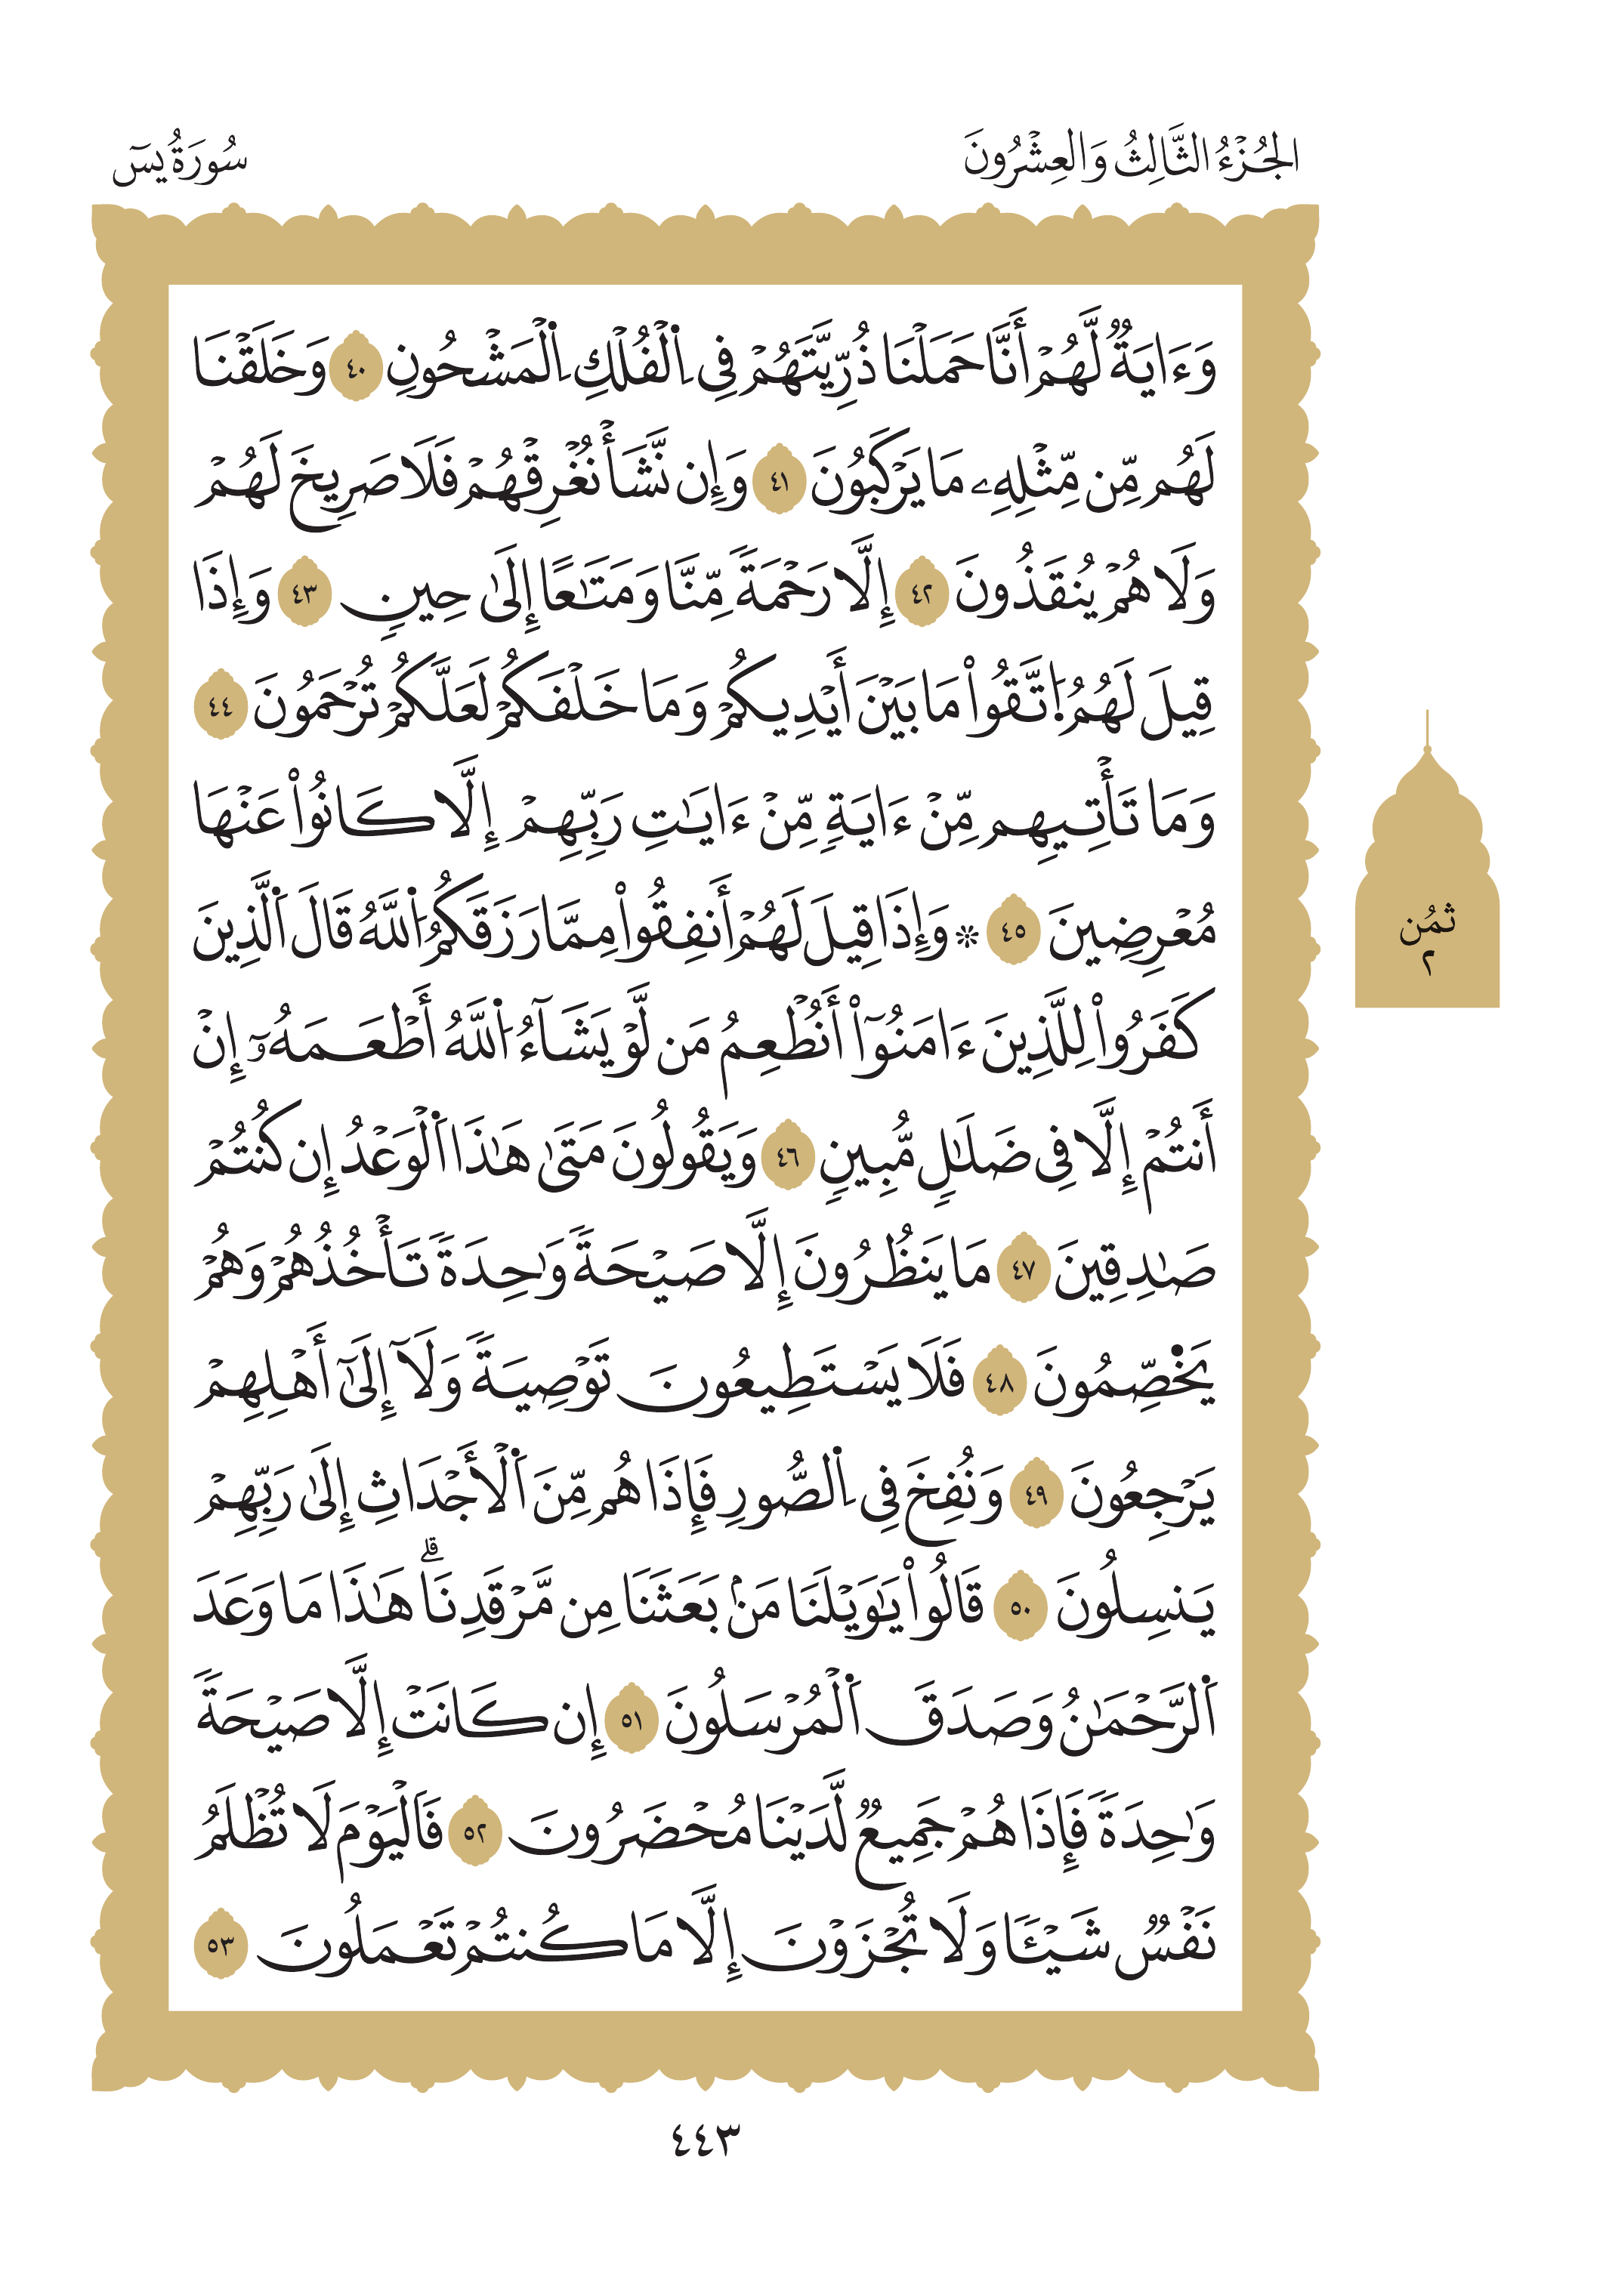 الجُزْءُ الثَّالِثُ وَالعِشْرُونَ
سُورَةُ يسٓ
وَءَايَةٞ لَّهُمْ أَنَّا حَمَلْنَا ذُرِّيَّتَهُمْ فِي اِ۬لْفُلْكِ اِ۬لْمَشْحُونِ ٤٠ وَخَلَقْنَا
لَهُم مِّن مِّثْلِهِۦ مَا يَرْكَبُونَ ٤١ وَإِن نَّشَأْ نُغْرِقْهُمْ فَلَا صَرِيخَ لَهُمْ
وَلَا هُمْ يُنقَذُونَ ٤٢ إِلَّا رَحْمَةٗ مِّنَّا وَمَتَٰعًا إِلَىٰ حِينٖ ٤٣ وَإِذَا
قِيلَ لَهُمُ اُ۪تَّقُواْ مَا بَيْنَ أَيْدِيكُمْ وَمَا خَلْفَكُمْ لَعَلَّكُمْ تُرْحَمُونَ ٤٤
وَمَا تَأْتِيهِم مِّنْ ءَايَةٖ مِّنْ ءَايَٰتِ رَبِّهِمْ إِلَّا كَانُواْ عَنْهَا
مُعْرِضِينَ ٤٥ ۞ وَإِذَا قِيلَ لَهُمْ أَنفِقُواْ مِمَّا رَزَقَكُمُ اُ۬للَّهُ قَالَ اَ۬لَّذِينَ
كَفَرُواْ لِلَّذِينَ ءَامَنُوٓاْ أَنُطْعِمُ مَن لَّوْ يَشَآءُ اُ۬للَّهُ أَطْعَمَهُۥٓ إِنْ
أَنتُمْ إِلَّا فِي ضَلَٰلٖ مُّبِينٖ ٤٦ وَيَقُولُونَ مَتَىٰ هَٰذَا اَ۬لْوَعْدُ إِن كُنتُمْ
صَٰدِقِينَ ٤٧ مَا يَنظُرُونَ إِلَّا صَيْحَةٗ وَٰحِدَةٗ تَأْخُذُهُمْ وَهُمْ
يَخَ۬صِّمُونَ ٤٨ فَلَا يَسْتَطِيعُونَ تَوْصِيَةٗ وَلَآ إِلَىٰٓ أَهْلِهِمْ
يَرْجِعُونَ ٤٩ وَنُفِخَ فِي اِ۬لصُّورِ فَإِذَا هُم مِّنَ اَ۬لْأَجْدَاثِ إِلَىٰ رَبِّهِمْ
يَنسِلُونَ ٥٠ قَالُواْ يَٰوَيْلَنَا مَنۢ بَعَثَنَا مِن مَّرْقَدِنَاۗ هَٰذَا مَا وَعَدَ
اَ۬لرَّحْمَٰنُ وَصَدَقَ اَ۬لْمُرْسَلُونَ ٥١ إِن كَانَتْ إِلَّا صَيْحَةٗ
وَٰحِدَةٗ فَإِذَا هُمْ جَمِيعٞ لَّدَيْنَا مُحْضَرُونَ ٥٢ فَالْيَوْمَ لَا تُظْلَمُ
نَفْسٞ شَيْـٔٗا وَلَا تُجْزَوْنَ إِلَّا مَا كُنتُمْ تَعْمَلُونَ ٥٣
ثُمُن
٢
٤٤٣